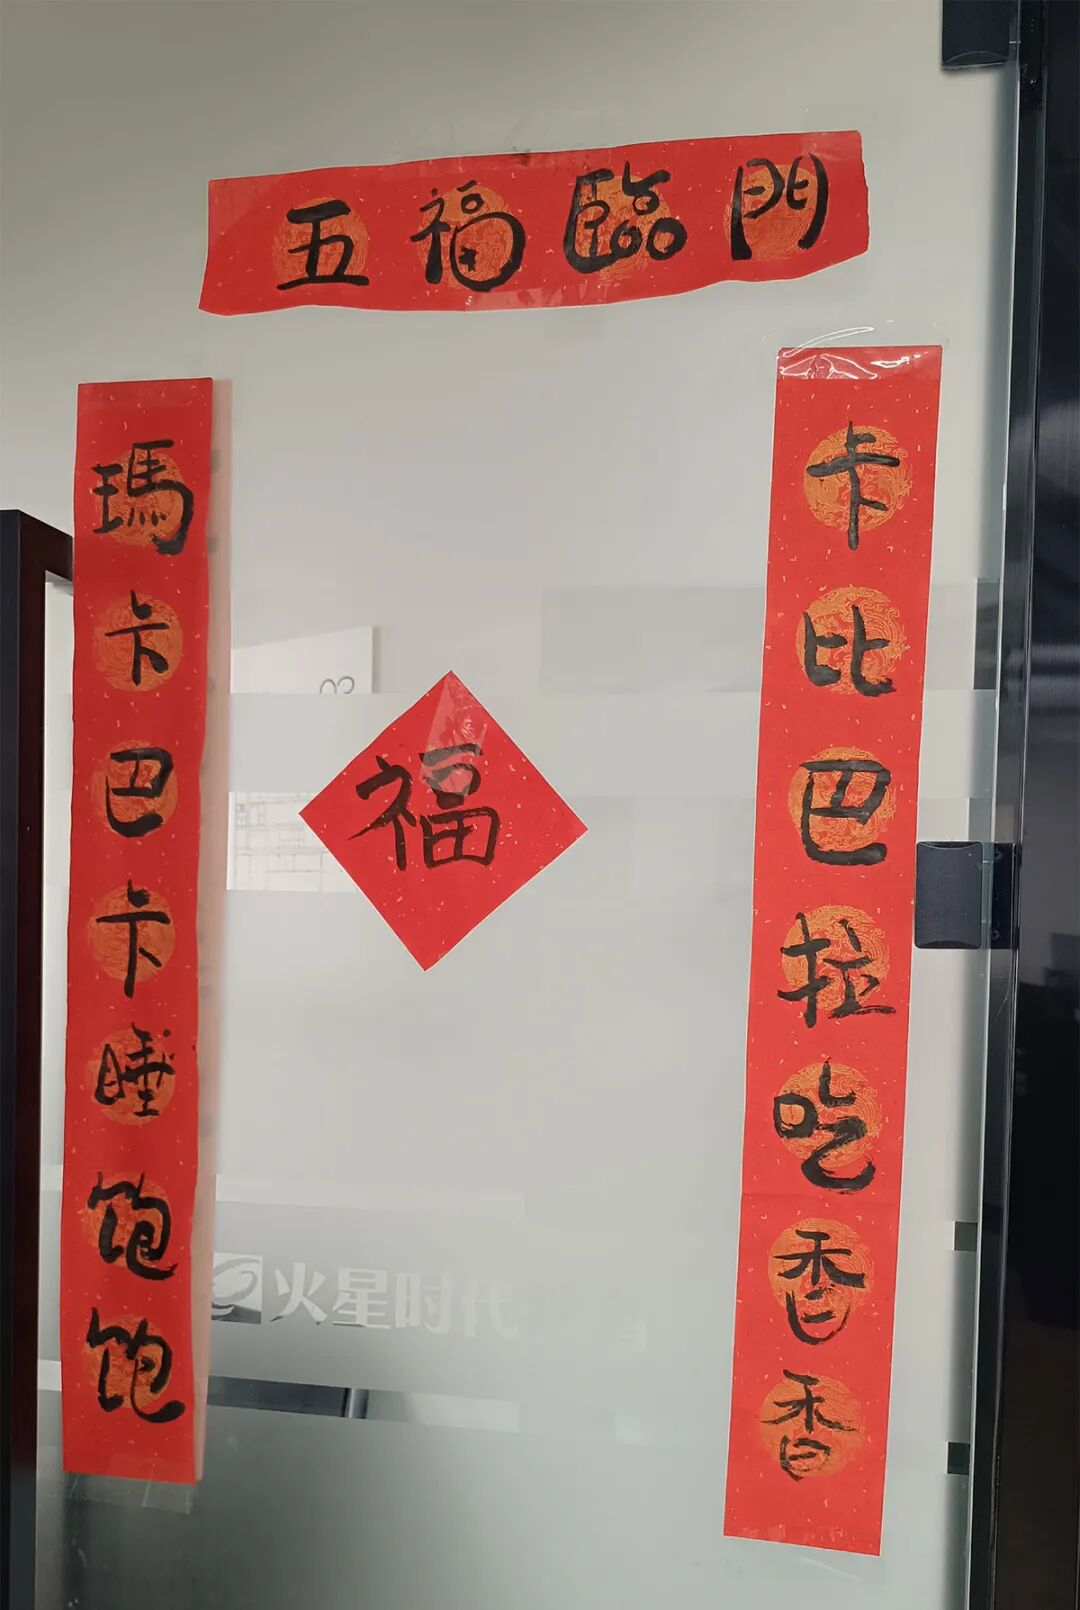 五福臨門
卡比巴拉吃香香
瑪卡巴卡睡飽飽
福
火星时代